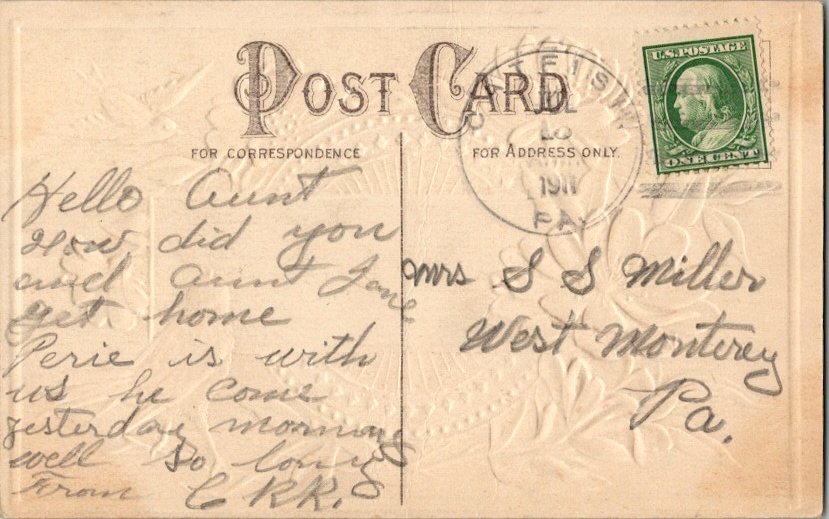 POST CARD
FOR CORRESPONDENCE
FOR ADDRESS ONLY.
U.S. POSTAGE
ONE CENT
1911
PA.
Hello Aunt
How did you
and Aunt Jane
get home
Perie is with
us he come
yesterday morning
well so long
From C RR.
Mrs S S Miller
West Monterey
Pa.